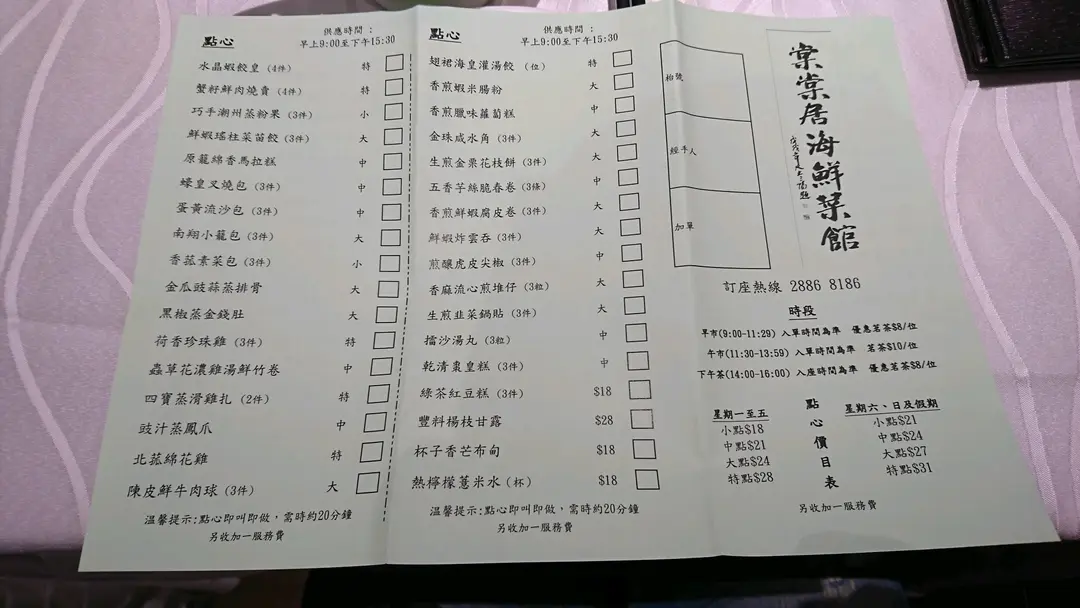 點心
供應時間：
早上9:00至下午15:30
水晶蝦餃皇 (4件) 特
蟹籽鮮肉燒賣 (4件) 特
巧手潮州蒸粉果 (3件) 小
鮮蝦瑤柱菜苗餃 (3件) 大
原籠綿香馬拉糕 中
蠔皇叉燒包 (3件) 中
蛋黃流沙包 (3件) 中
南翔小籠包 (3件) 大
香菰素菜包 (3件) 小
金瓜豉蒜蒸排骨 大
黑椒蒸金錢肚 大
荷香珍珠雞 (3件) 特
蟲草花濃雞湯鮮竹卷 中
四寶蒸滑雞扎 (2件) 特
豉汁蒸鳳爪 中
北菰綿花雞 特
陳皮鮮牛肉球 (3件) 大
溫馨提示:點心即叫即做，需時約20分鐘
另收加一服務費
點心
供應時間：
早上9:00至下午15:30
翅裙海皇灌湯餃 (位) 特
香煎蝦米腸粉 大
香煎臘味蘿蔔糕 中
金珠咸水角 (3件) 大
生煎金栗花枝餅 (3件) 大
五香芋絲脆春卷 (3條) 中
香煎鮮蝦腐皮卷 (3件) 大
鮮蝦炸雲吞 (3件) 大
煎釀虎皮尖椒 (3件) 大
香麻流心煎堆仔 (3粒) 大
生煎韭菜鍋貼 (3件) 大
擂沙湯丸 (3粒) 中
乾清棗皇糕 (3件) 中
綠茶紅豆糕 (3件) $18
豐料楊枝甘露 $28
杯子香芒布甸 $18
熱檸檬薏米水 (杯) $18
溫馨提示:點心即叫即做，需時約20分鐘
另收加一服務費
枱號
經手人
加單
棠棠居海鮮菜館
訂座熱線 2886 8186
時段
早市(9:00-11:29) 入單時間為準 優惠茗茶$8/位
午市(11:30-13:59) 入單時間為準 茗茶$10/位
下午茶(14:00-16:00) 入座時間為準 優惠茗茶$8/位
點心價目表
星期一至五
小點$18
中點$21
大點$24
特點$28
星期六、日及假期
小點$21
中點$24
大點$27
特點$31
另收加一服務費